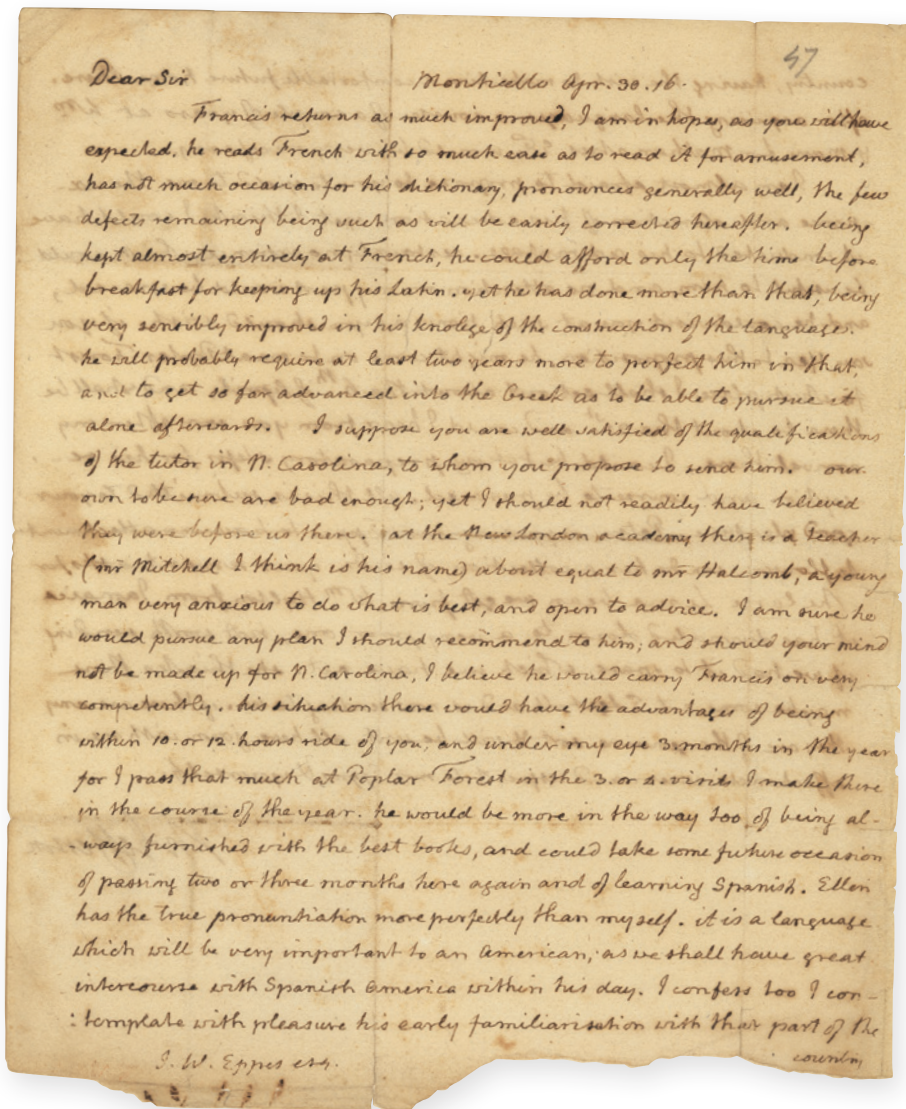 47
Dear Sir Monticello Apr. 30. 16.
Francis returns as much improved, I am in hopes, as you will have
expected. he reads French with so much ease as to read it for amusement,
has not much occasion for his dictionary, pronounces generally well, the few
defects remaining being such as will be easily corrected hereafter. being
kept almost entirely at French, he could afford only the time before
breakfast for keeping up his Latin. yet he has done more than that, being
very sensibly improved in his knolege of the construction of the language.
he will probably require at least two years more to perfect him in that,
and to get so far advanced into the Greek as to be able to pursue it
alone afterwards. I suppose you are well satisfied of the qualifications
of the tutor in N. Carolina, to whom you propose to send him. our
own to be sure are bad enough; yet I should not readily have believed
they were before us there. at the New London academy there is a teacher
(mr Mitchell I think is his name) about equal to mr Halcomb, a young
man very anxious to do what is best, and open to advice. I am sure he
would pursue any plan I should recommend to him; and should your mind
not be made up for N. Carolina, I believe he would carry Francis on very
competently. his situation there would have the advantages of being
within 10. or 12. hours ride of you, and under my eye 3. months in the year
for I pass that much at Poplar Forest in the 3. or 4. visits I make there
in the course of the year. he would be more in the way too of being al-
-ways furnished with the best books, and could take some future occasion
of passing two or three months here again and of learning Spanish. Ellen
has the true pronuntiation more perfectly than myself. it is a language
which will be very important to an American, as we shall have great
intercourse with Spanish America within his day. I confess too I con-
:template with pleasure his early familiarisation with that part of the
J. W. Eppes esq. country